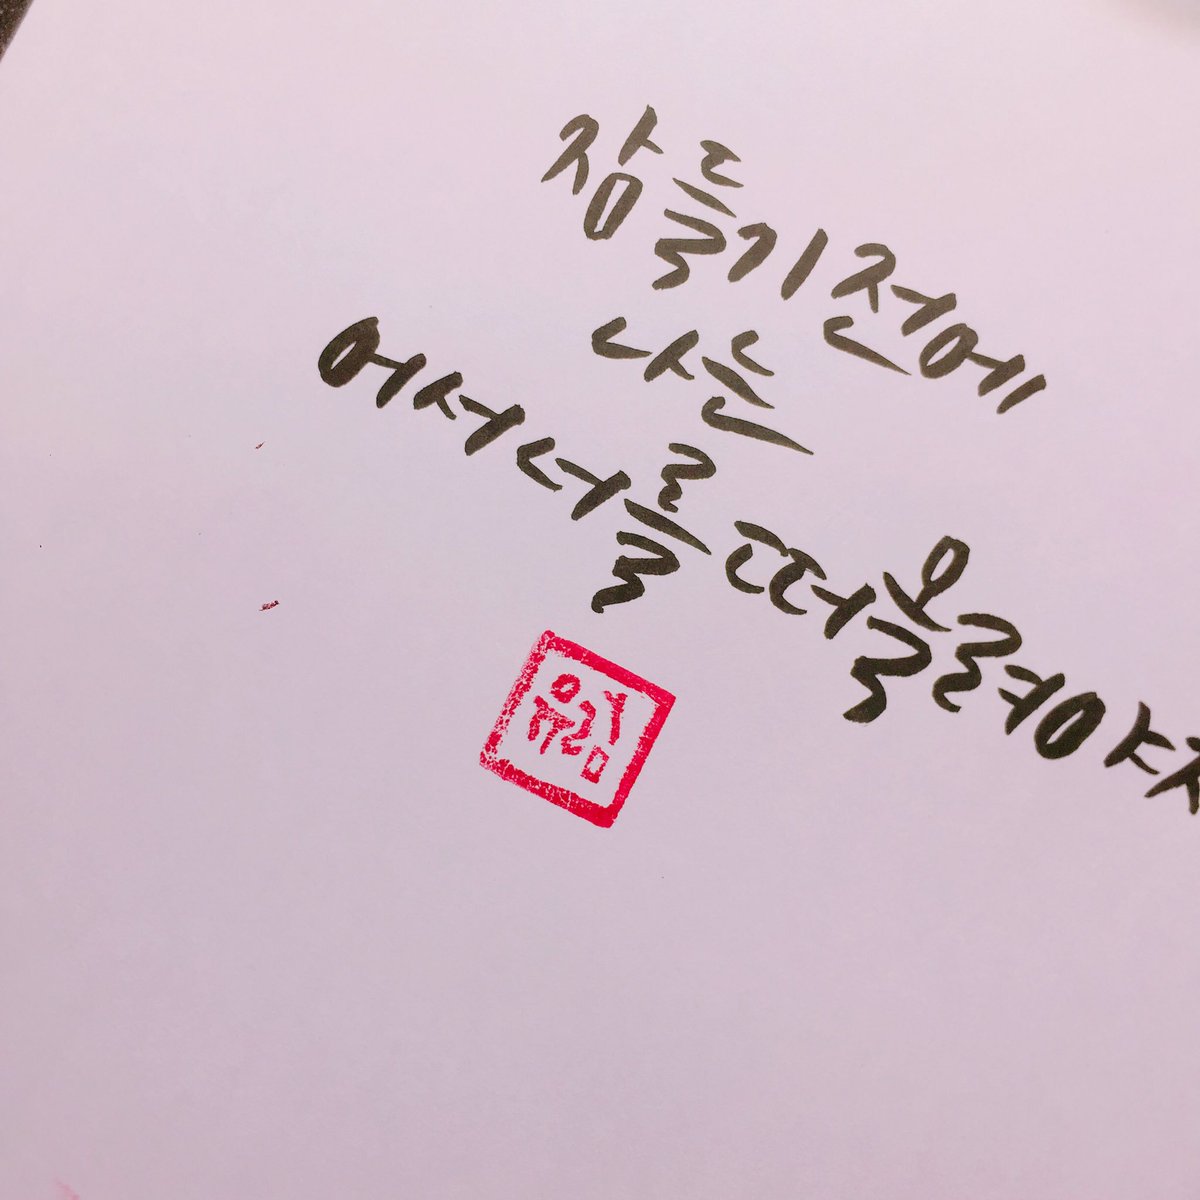 잠들기 전에
나는
어서 너를 떠올려야지
유림